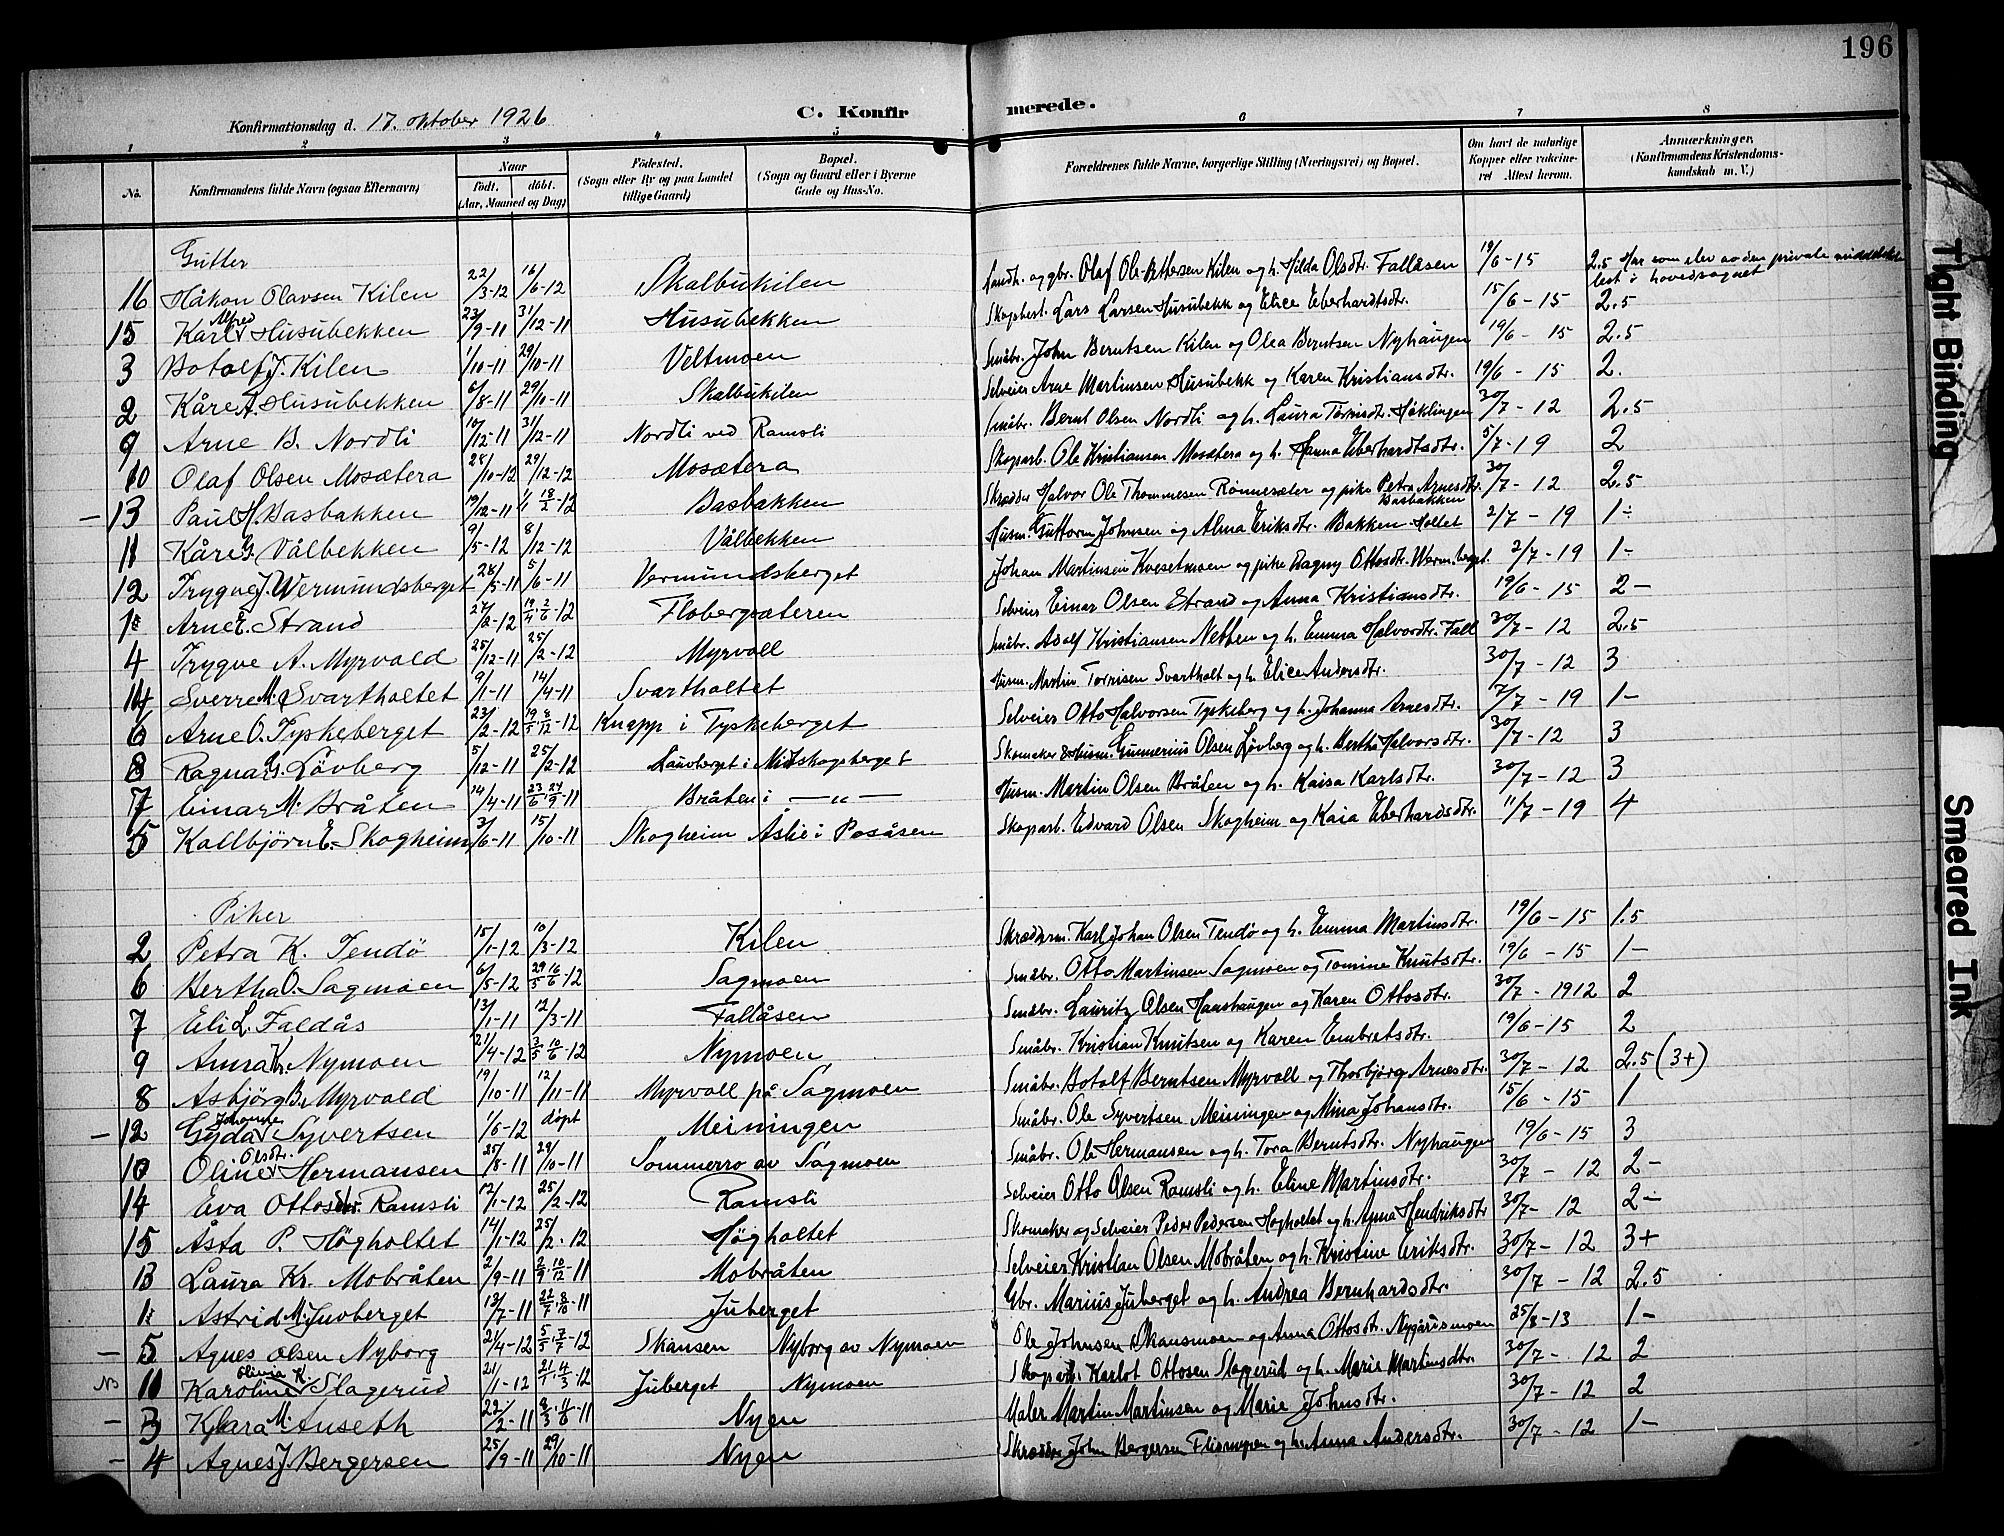 196
Konfirmationsdag d. 17. oktober 1926
C. Konfir merede.
1 2 3 4 5 6 7 8
No. Konfirmandens fulde Navn (ogsaa Efternavn) Naar födt. döbt. (Aar, Maaned og Dag) Födested. (Sogn eller By og paa Landet tillige Gaard) Bopæl. (Sogn og Gaard eller i Byerne Gade og Hus-No. Forældrenes fulde Navne, borgerlige Stilling (Næringsvei) og Bopæl. Om havt de naturlige Kopper eller vaccineret Attest herom. Anmærkninger. (Konfirmandens Kristendomskundskab m. V.)
Gutter
16 Håkon Olavsen Kilen 22/3-12 16/6-12 Skalbukilen Landh. og gbr. Olaf Ole Pettersen Kilen og h. Hilda Olsdtr. Fallåsen 19/6-15 2.5 Har som elev av den private middelskole lest i hovedsognet
15 Karl Alfred Husubekken 23/9-11 31/12-11 Husubekken Skogbest. Lars Larsen Husubekk og Elice Eberhardtsdtr. 15/6-15 2.5
3 Botolf J. Kilen 1/10-11 29/10-11 Veltmoen Småbr. John Berntsen Kilen og Olea Berntsen Nyhaugen 19/6-15 2.5
2 Kåre A. Husubekken 6/8-11 29/10-11 Skalbukilen Selveier Arne Martinsen Husubekk og Karen Kristiansdtr. 19/6-15 2.
9 Arne B. Nordli 10/12-11 31/12-11 Nordli ved Ramsli Småbr. Bernt Olsen Nordli og h. Laura Torinsdtr. Häklingen 30/7-12 2.5
10 Olaf Olsen Mosætera 28/10-12 29/12-12 Mosætera Skogarb. Ole Kristiansen Mosætera og h. Hanna Eberhardtsdtr. 5/7-19 2
- 13 Paul H. Basbakken 19/12-11 1/1 18/2-12 Basbakken Skrædder Halvor Ole Thommesen Rönnesæter og pike Petra Arnesdtr. Basbakken 30/7-12 2.5
11 Kåre G. Vålbekken 9/5-12 8/12-12 Vålbekken Husm. Guttorm Johnsen og Alma Eriksdtr. Bakken-Holtet 2/7-19 1-
12 Trygve J. Wermundsberget 28/5-11 5/6-11 Vermundsberget Johan Martinsen Kvesetmoen og pike Dagny Ottosdtr. Werm.berget. 2/7-19 1-
1 Arne E. Strand 27/2-12 19/4 2/6-12 Flobergsæteren Selveier Einar Olsen Strand og Anna Kristiansdtr. 19/6-15 2-
4 Trygve A. Myrvold 25/12-11 25/2-12 Myrvoll Småbr. Adolf Kristiansen Nebben og h. Emma Halvordtr. Fall 30/7-12 2.5
14 Sverre M. Svartholtet 9/1-11 14/4-11 Svartholtet Husm. Martin Torinsen Svartholt og h. Elice Andersdtr. 30/7-12 3
6 Arne O. Tyskeberget 23/2-12 19/5 8/12-12 Knapp i Tyskeberget Selveier Otto Halvorsen Tyskeberg og h. Johanna Arnesdtr. 7/7-19 1-
8 Ragnar G. Lövberg 5/12-11 25/2-12 Lauvberget i Midskogsberget Skomaker & husm. Gunnerius Olsen Lövberg og h. Bertha Halvorsdtr. 30/7-12 3
7 Einar M. Bråten 14/4-11 23/6 24/9-11 Bråten i -"- Husm. Martin Olsen Bråten og h. Kaisa Karlsdtr. 30/7-12 3
5 Kallbjörn E. Skogheim 3/6-11 15/10-11 Skogheim Aslie i Posåsen Skogarb. Edvard Olsen Skogheim og Kaia Eberhardsdtr. 11/7-19 4
Piker
2 Petra K. Tendö 15/1-12 10/3-12 Kilen Skrædderm. Karl Johan Olsen Tendö og h. Emma Martinsdtr. 19/6-15 1.5
6 Bertha O. Sagmoen 6/5-12 29/5 16/6-12 Sagmoen Småbr. Otto Martinsen Sagmoen og Tomine Knutsdtr. 19/6-15 1-
7 Eli L. Faldås 13/1-11 12/3-11 Fallåsen Småbr. Lauritz Olsen Haushaugen og Karen Ottosdtr. 30/7-1912 2
9 Anna K. Nymoen 21/4-12 3/5 10/6-12 Nymoen Småbr. Kristian Knutsen og Karen Embretsdtr. 19/6-15 2
8 Asbjörg B. Myrvold 19/10-11 12/11-11 Myrvoll på Sagmoen Småbr. Botolf Berntsen Myrvoll og Thorbjörg Arnesdtr. 30/7-12 2.5 (3+)
- 12 Gyda Johanne Syvertsen 1/6-12 döpt Meiningen Småbr. Ole Syvertsen Meiningen og Mina Johansdtr. 15/6-15 1
10 Oline Olsdtr. Hermansen 25/8-11 29/10-11 Sommerro av Sagmoen Småbr. Ole Hermansen og h. Tora Berntsdtr. Nyhaugen 19/6-15 3
14 Eva Ottosdtr. Ramsli 12/1-12 25/2-12 Ramsli Selveier Otto Olsen Ramsli og h. Eline Martinsdtr. 30/7-12 2-
15 Åsta P. Högholtet 14/1-12 25/2-12 Högholtet Skomaker og Selveier Peder Pedersen Hogholtet og h. Anna Hendriksdtr 30/7-12 2-
13 Laura Kr. Mobråten 2/9-11 2/9 10/12-11 Mobråten Selveier Kristian Olsen Mobråten og h. Kristine Eriksdtr. 30/7-12 3+
1 Astrid M. Juvberget 13/7-11 22/7 8/10-11 Juberget Gbr. Marius Juberget og h. Andrea Bernhardsdtr. 30/7-12 2.5
- 5 Agnes Olsen Nyborg 21/4-12 5/5 7/7-12 Skansen Nyborg av Nymoen Ole Johnsen Skansmoen og Anna Ottosdtr. Nygårdsmoen 25/8-13 1-
NB 11 Karoline Olivia K. Slagerud 21/1-12 21/1 4/3-12 Juberget Nymoen Skogarb. Karlot Ottosen Slagerud og h. Marie Martinsdtr. 30/7-12 2
- 3 Klara M. Anseth 22/2-11 9/3 4/6-11 Nyen Maler Martin Martinsen og Marie Johnsdtr. 30/7-12 2
- 4 Agnes J. Bergersen 25/9-11 29/10-11 Nyen Skrædder John Bergersen Flisnyen og h. Anna Andersdtr. 30/7-12 1-
Tight Binding
Smeared Ink